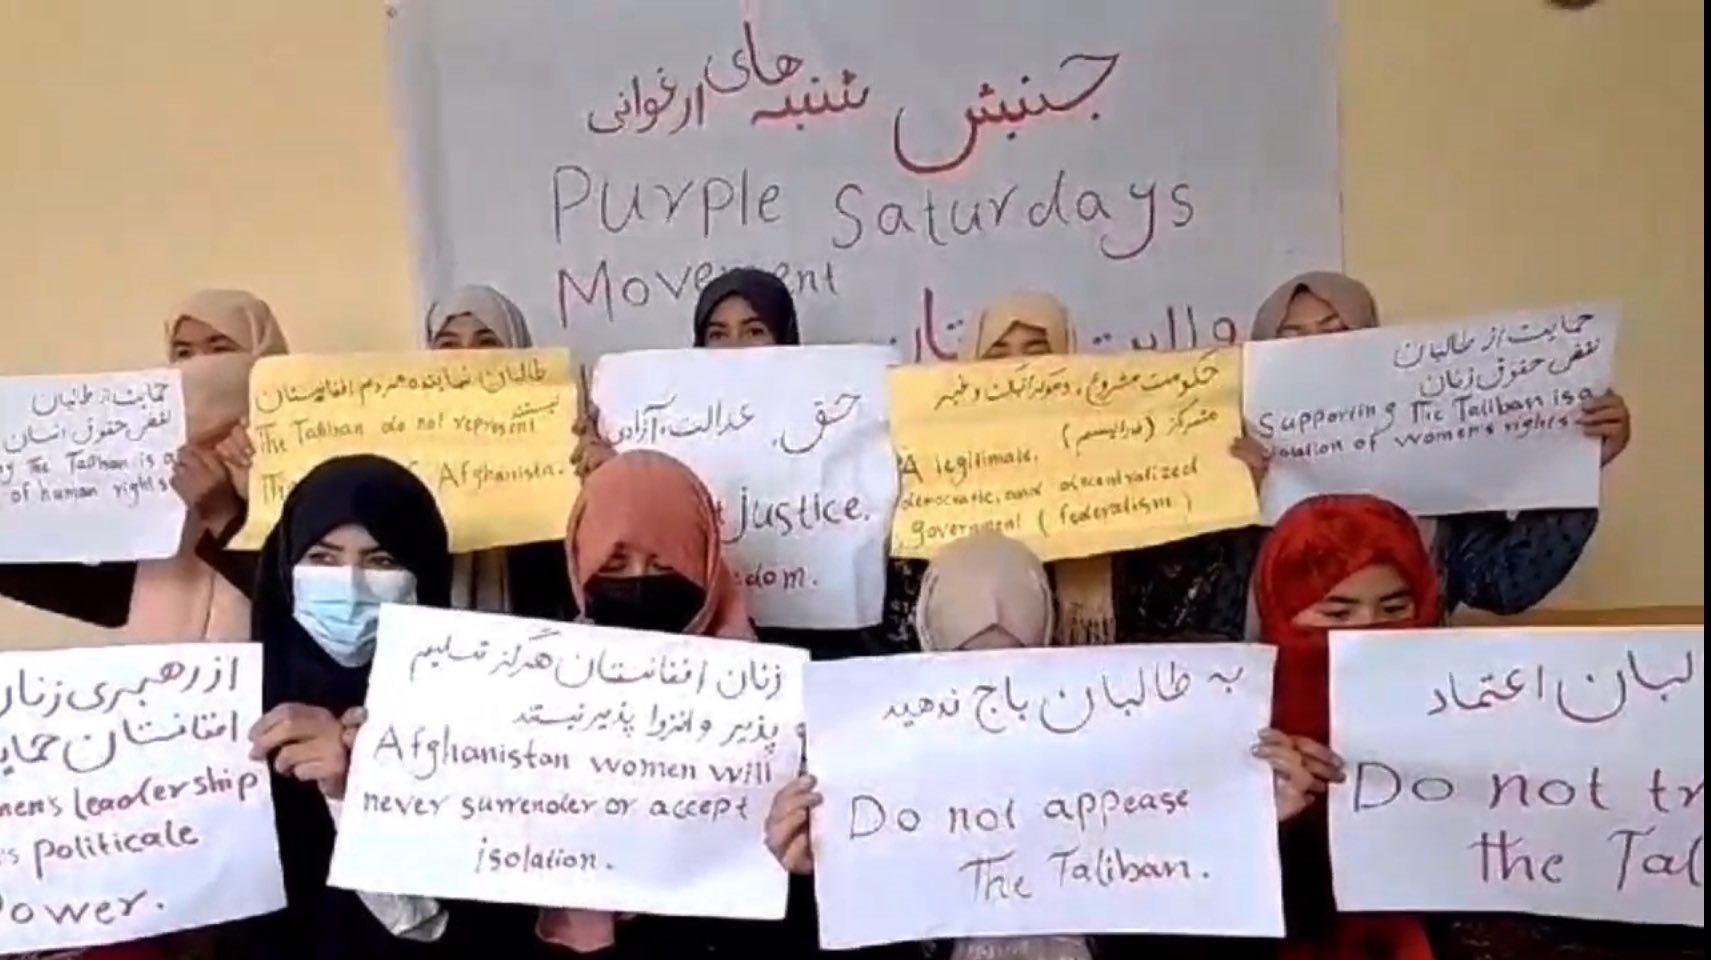 جنبش شنبه های ارغوانی
Purple Saturdays
Movement
حمایت از طالبان
نقض حقوق انسان
The Taliban is a
of human rights
طالبان نماینده مردم افغانستان
نیستند
The Taliban do not represent
Afghanistan.
حق، عدالت، آزادی
justice.
حکومت مشروع، دموکراتیک و غیر
متمرکز (فدرالیسم)
A legitimate,
democratic, and decentralized
government (federalism)
حمایت از طالبان
نقض حقوق زنان
Supporting The Taliban is a
of women's rights.
از رهبری زنان
افغانستان
leadership
politicale
Power.
زنان افغانستان هرگز تسلیم
پذیر و انزوا پذیر نیستند
Afghanistan women will
never surrender or accept
isolation.
به طالبان باج ندهید
Do not appease
The Taliban.
اعتماد
Do not
the